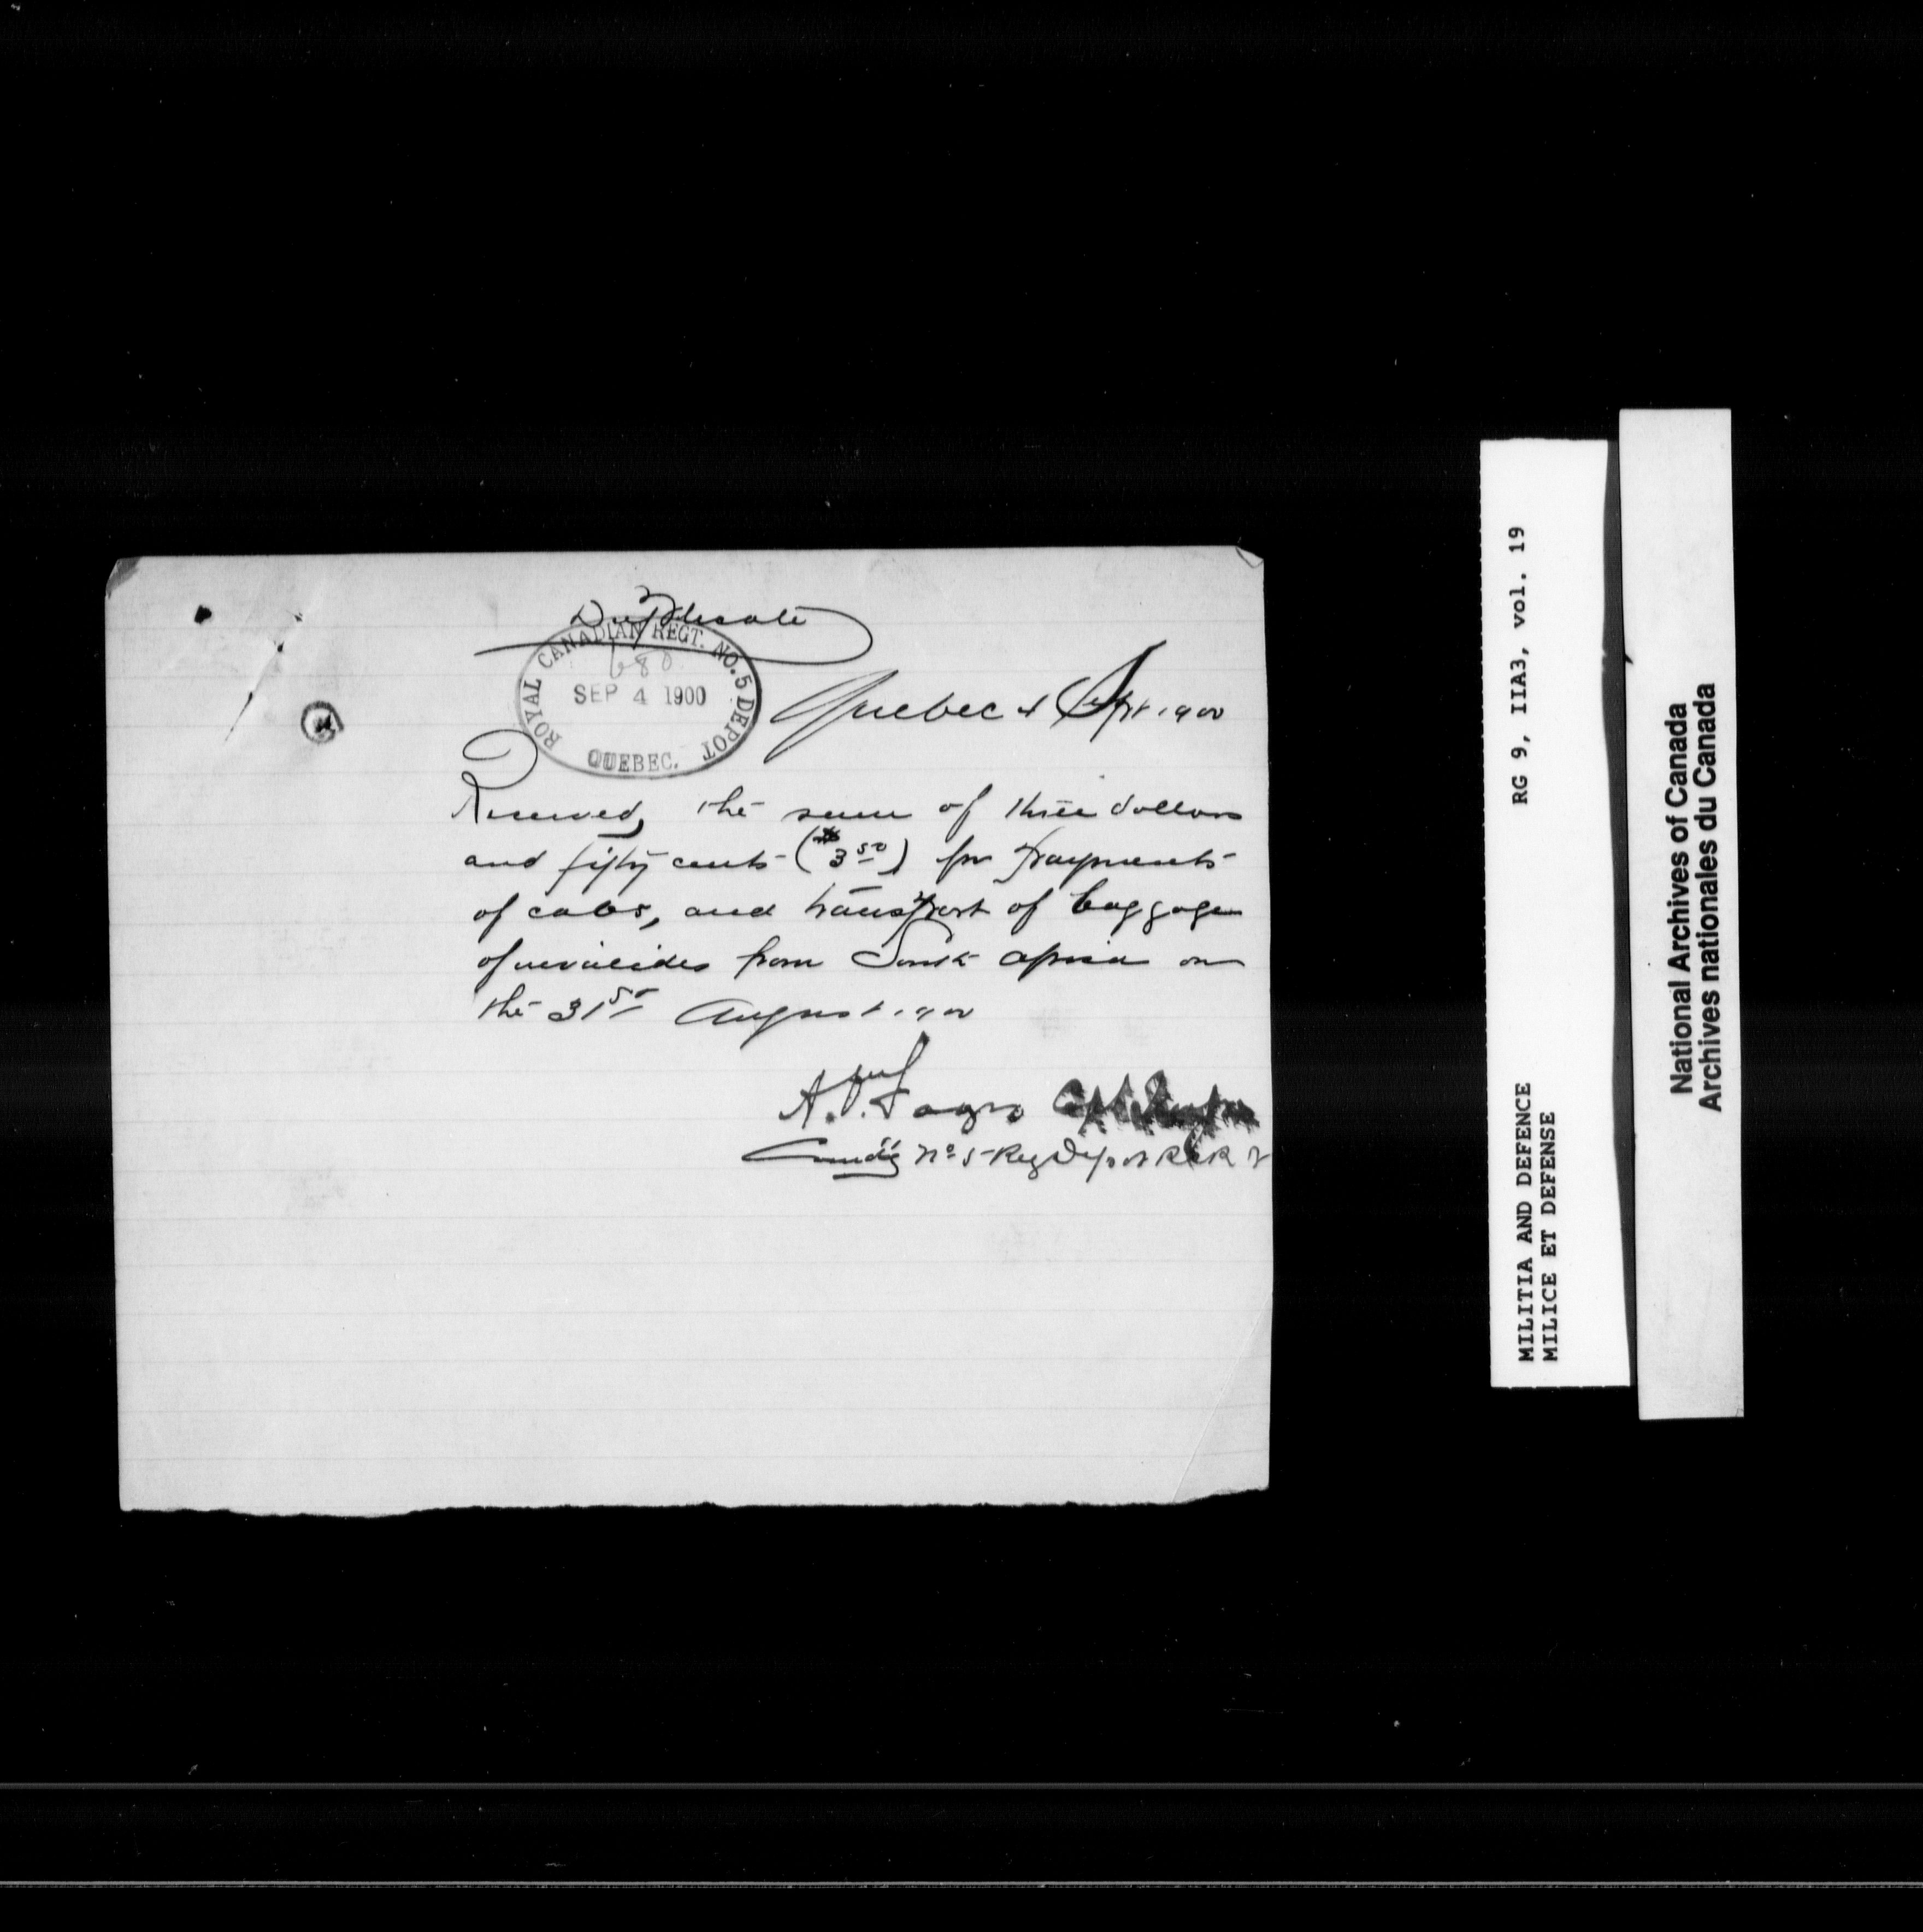 Duplicate
ROYAL CANADIAN REGT. NO. 5 DEPOT
680
SEP 4 1900
QUEBEC.
Quebec 4 Sept. 1900
Received, the sum of three dollars
and fifty cents ($3.50) for payments
of cabs, and transport of baggage
of invalides from South Africa on
the 31st August 1900
Comd'g No 5 Reg Depot RCR
RG 9, IIA3, vol. 19
MILITIA AND DEFENCE
MILICE ET DEFENSE
National Archives of Canada
Archives nationales du Canada